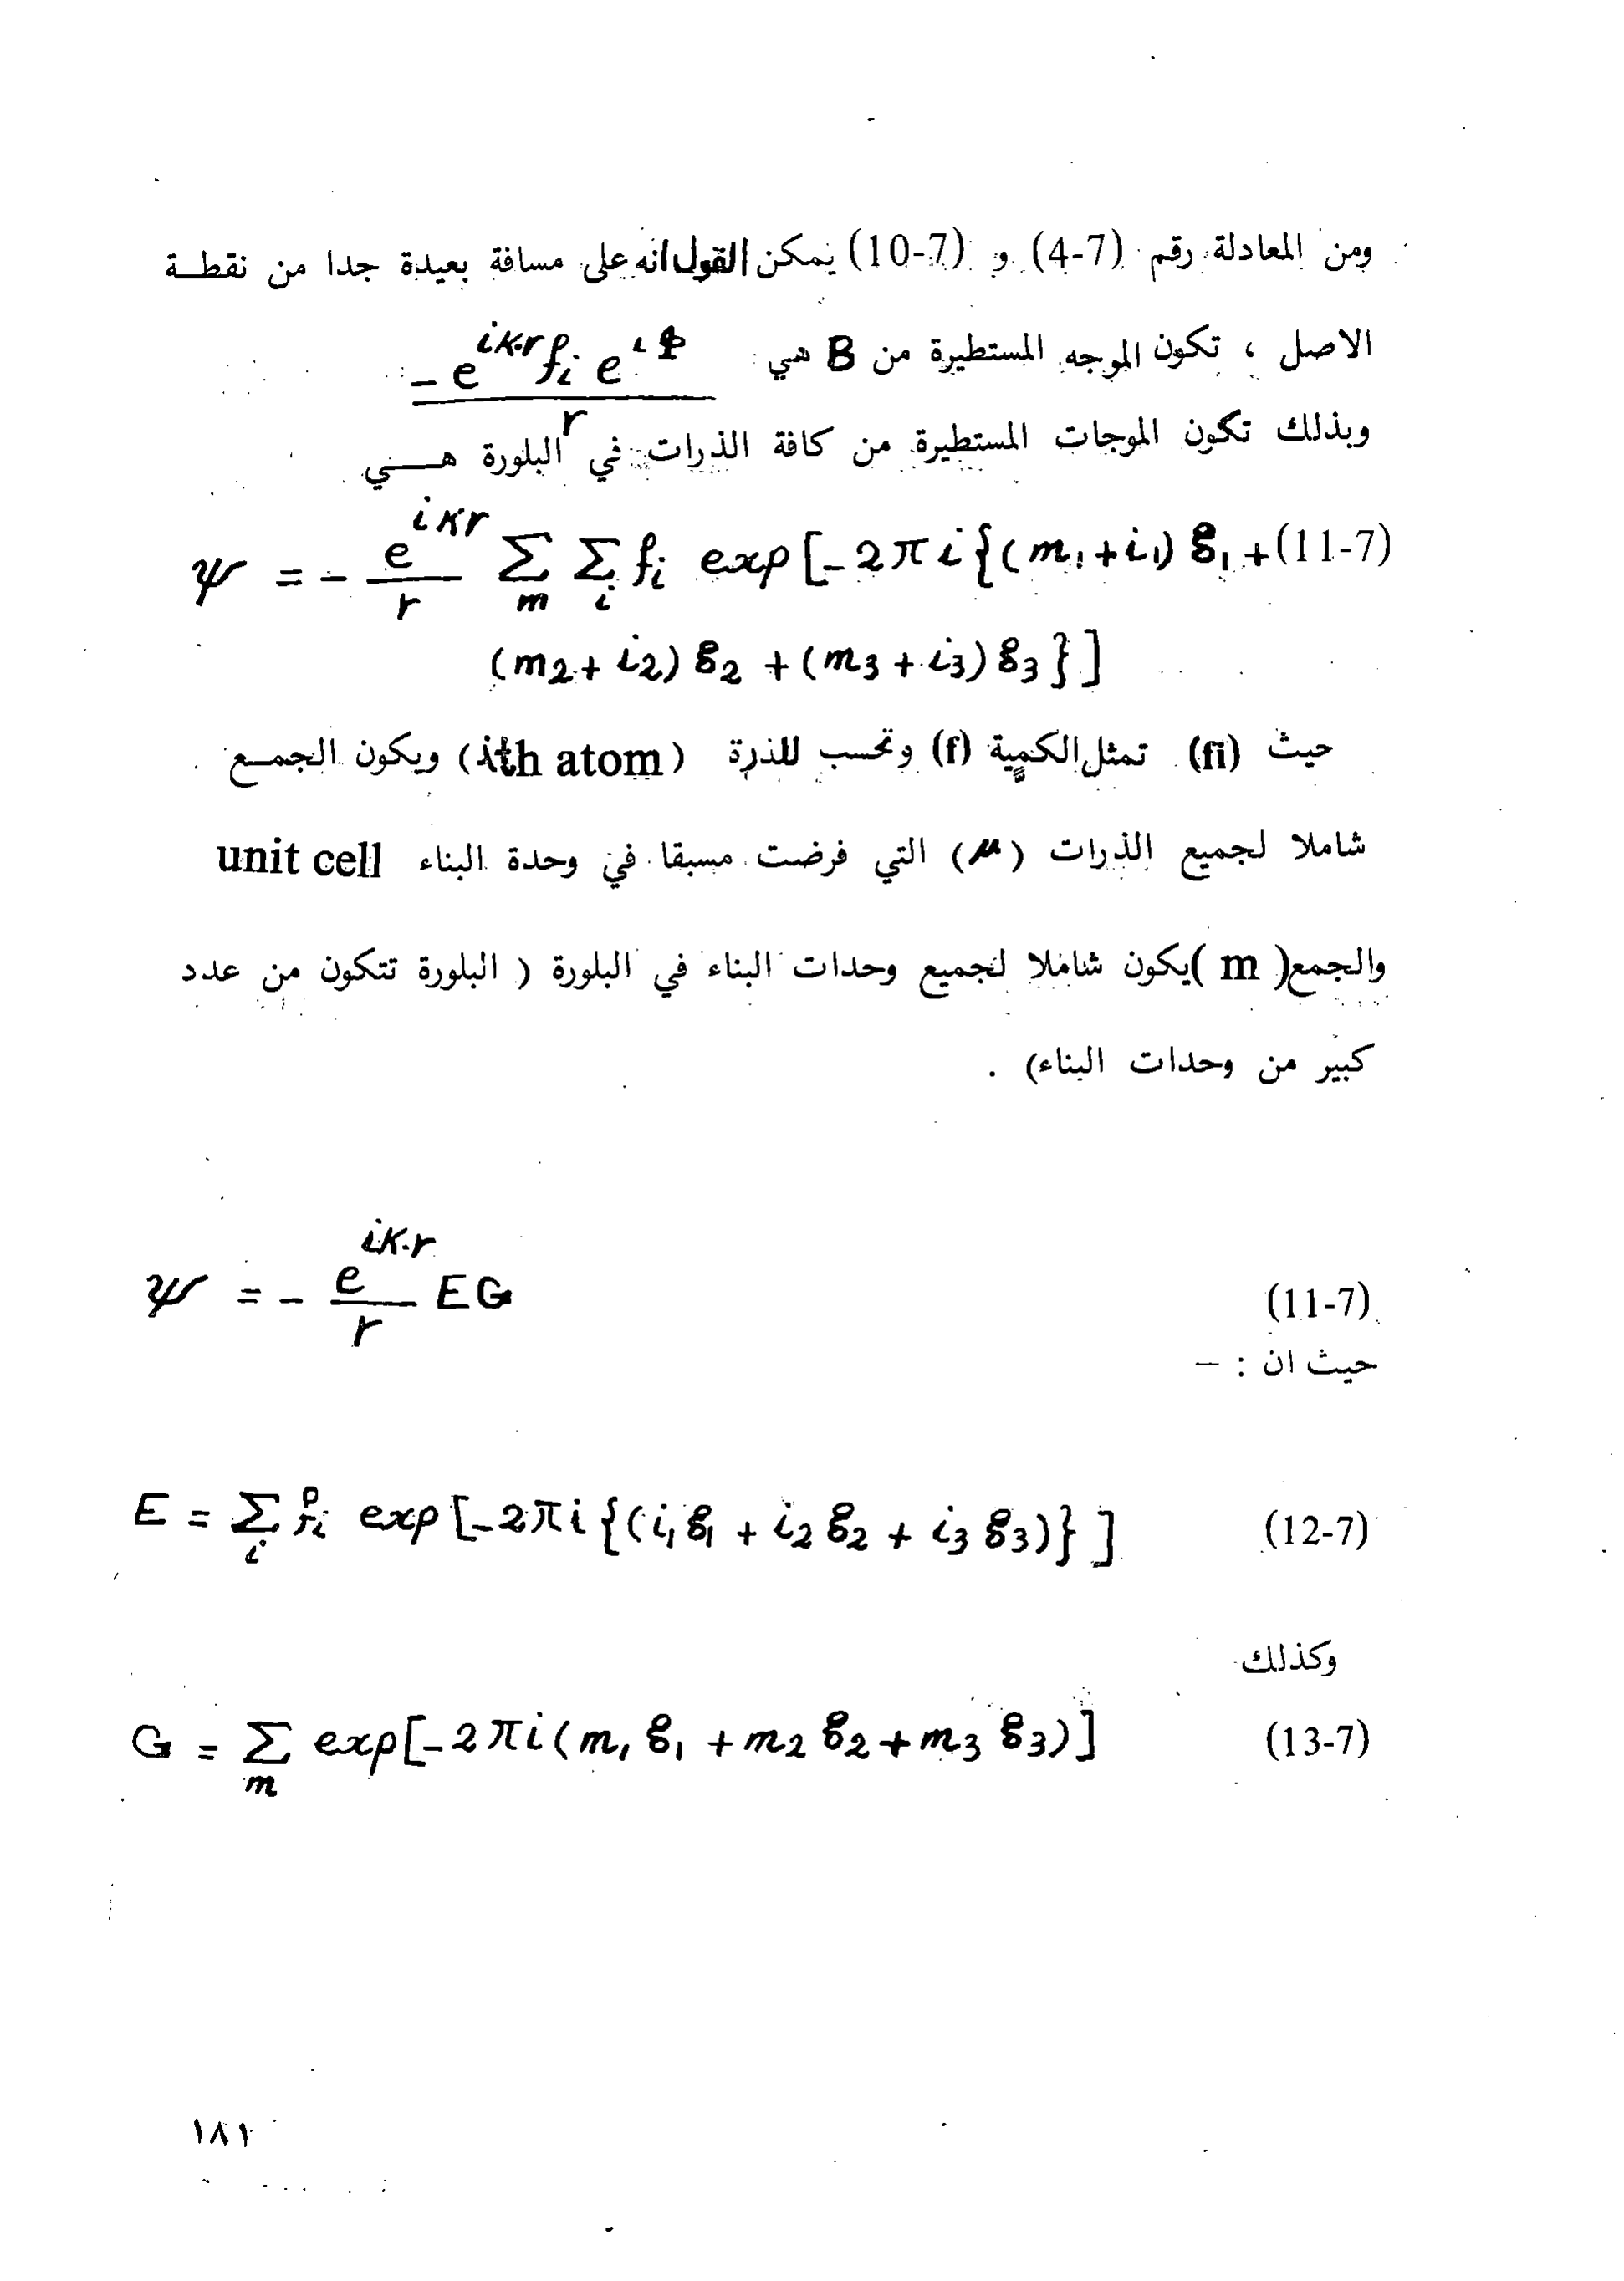 ومن المعادلة رقم (4-7) و (10-7) يمكن القول انه على مسافة بعيدة جدا من نقطـة
الاصل ، تكون الموجه المستطيرة من B هي : $\frac{-e^{ik.r} f_i e^{i\Phi}}{r}$
وبذلك تكون الموجات المستطيرة من كافة الذرات في البلورة هـــي
ψ = - $\frac{e^{ikr}}{r}$ $\sum_m \sum_i f_i$ exp [-2πi{(m₁+i₁) g₁ + (11-7)
(m₂+ i₂) g₂ + (m₃ + i₃) g₃ } ]
حيث (fi) تمثل الكمية (f) وتحسب للذرة (ith atom) ويكون الجمـع
شاملا لجميع الذرات (μ) التي فرضت مسبقا في وحدة البناء unit cell
والجمع( m )يكون شاملا لجميع وحدات البناء في البلورة ( البلورة تتكون من عدد
كبير من وحدات البناء) .
ψ = - $\frac{e^{ik.r}}{r}$ EG (11-7)
حيث ان : –
E = $\sum_i f_i$ exp [-2πi {(i₁g₁ + i₂ g₂ + i₃ g₃)} ] (12-7)
وكذلك
G = $\sum_m$ exp[-2πi (m₁ g₁ + m₂ g₂ + m₃ g₃)] (13-7)
١٨١